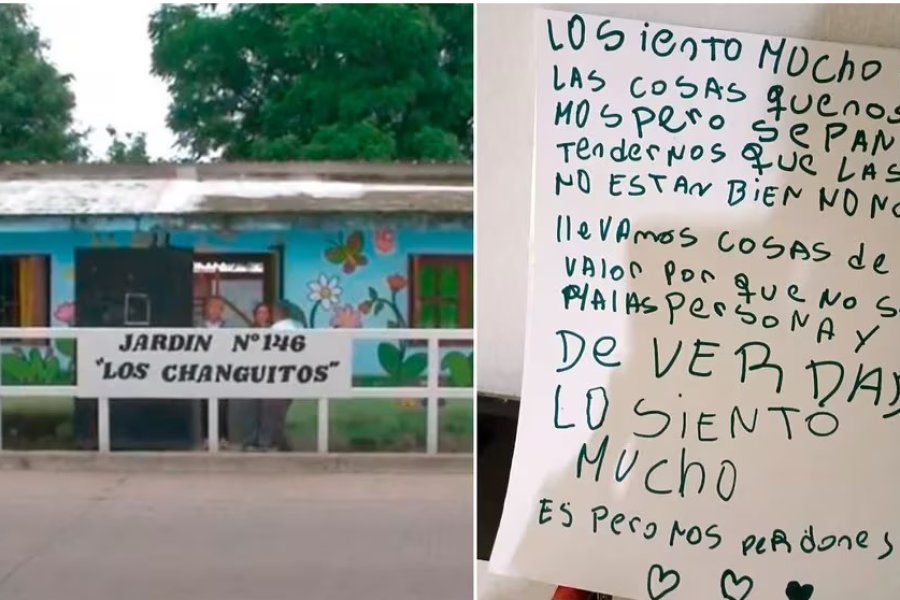 JARDIN Nº 146
"LOS CHANGUITOS"
LO Siento MUCHO
LAS COSAS QUENOS
MOS PERO SEPAN
TENderNOS QUE LAS
NO ESTAN BIEN NO NO
llevAMOS COSAS de
VALOR POR QUE NO S
MALAS PERSONA Y
De VERDAD
LO SIENTO
MUCHO
ESPERO NOS PERDONES